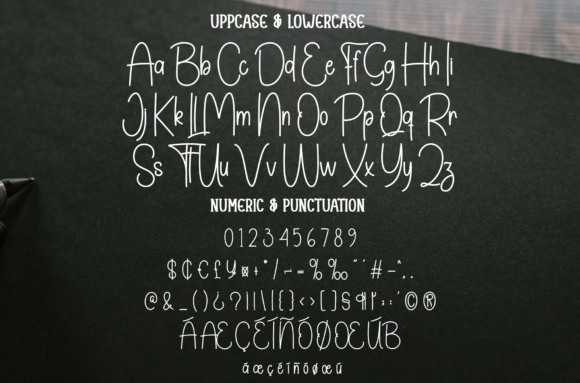 UPPCASE & LOWERCASE
Aa Bb Cc Dd Ee Ff Gg Hh Ii
Jj Kk Ll Mm Nn Oo Pp Qq Rr
Ss Tt Uu Vv Ww Xx Yy Zz
NUMERIC & PUNCTUATION
0123456789
$ ₵ € £ ¥ ¤ + * / ~ = % ‰ " # – ^ . .
@ & _ ( ) ¿ ? | | \ [ { } < > [ ] § ¶ : ; ' © ®
ÁÆÇËÍÑÓØŒÚB
áæçëíñóøœú